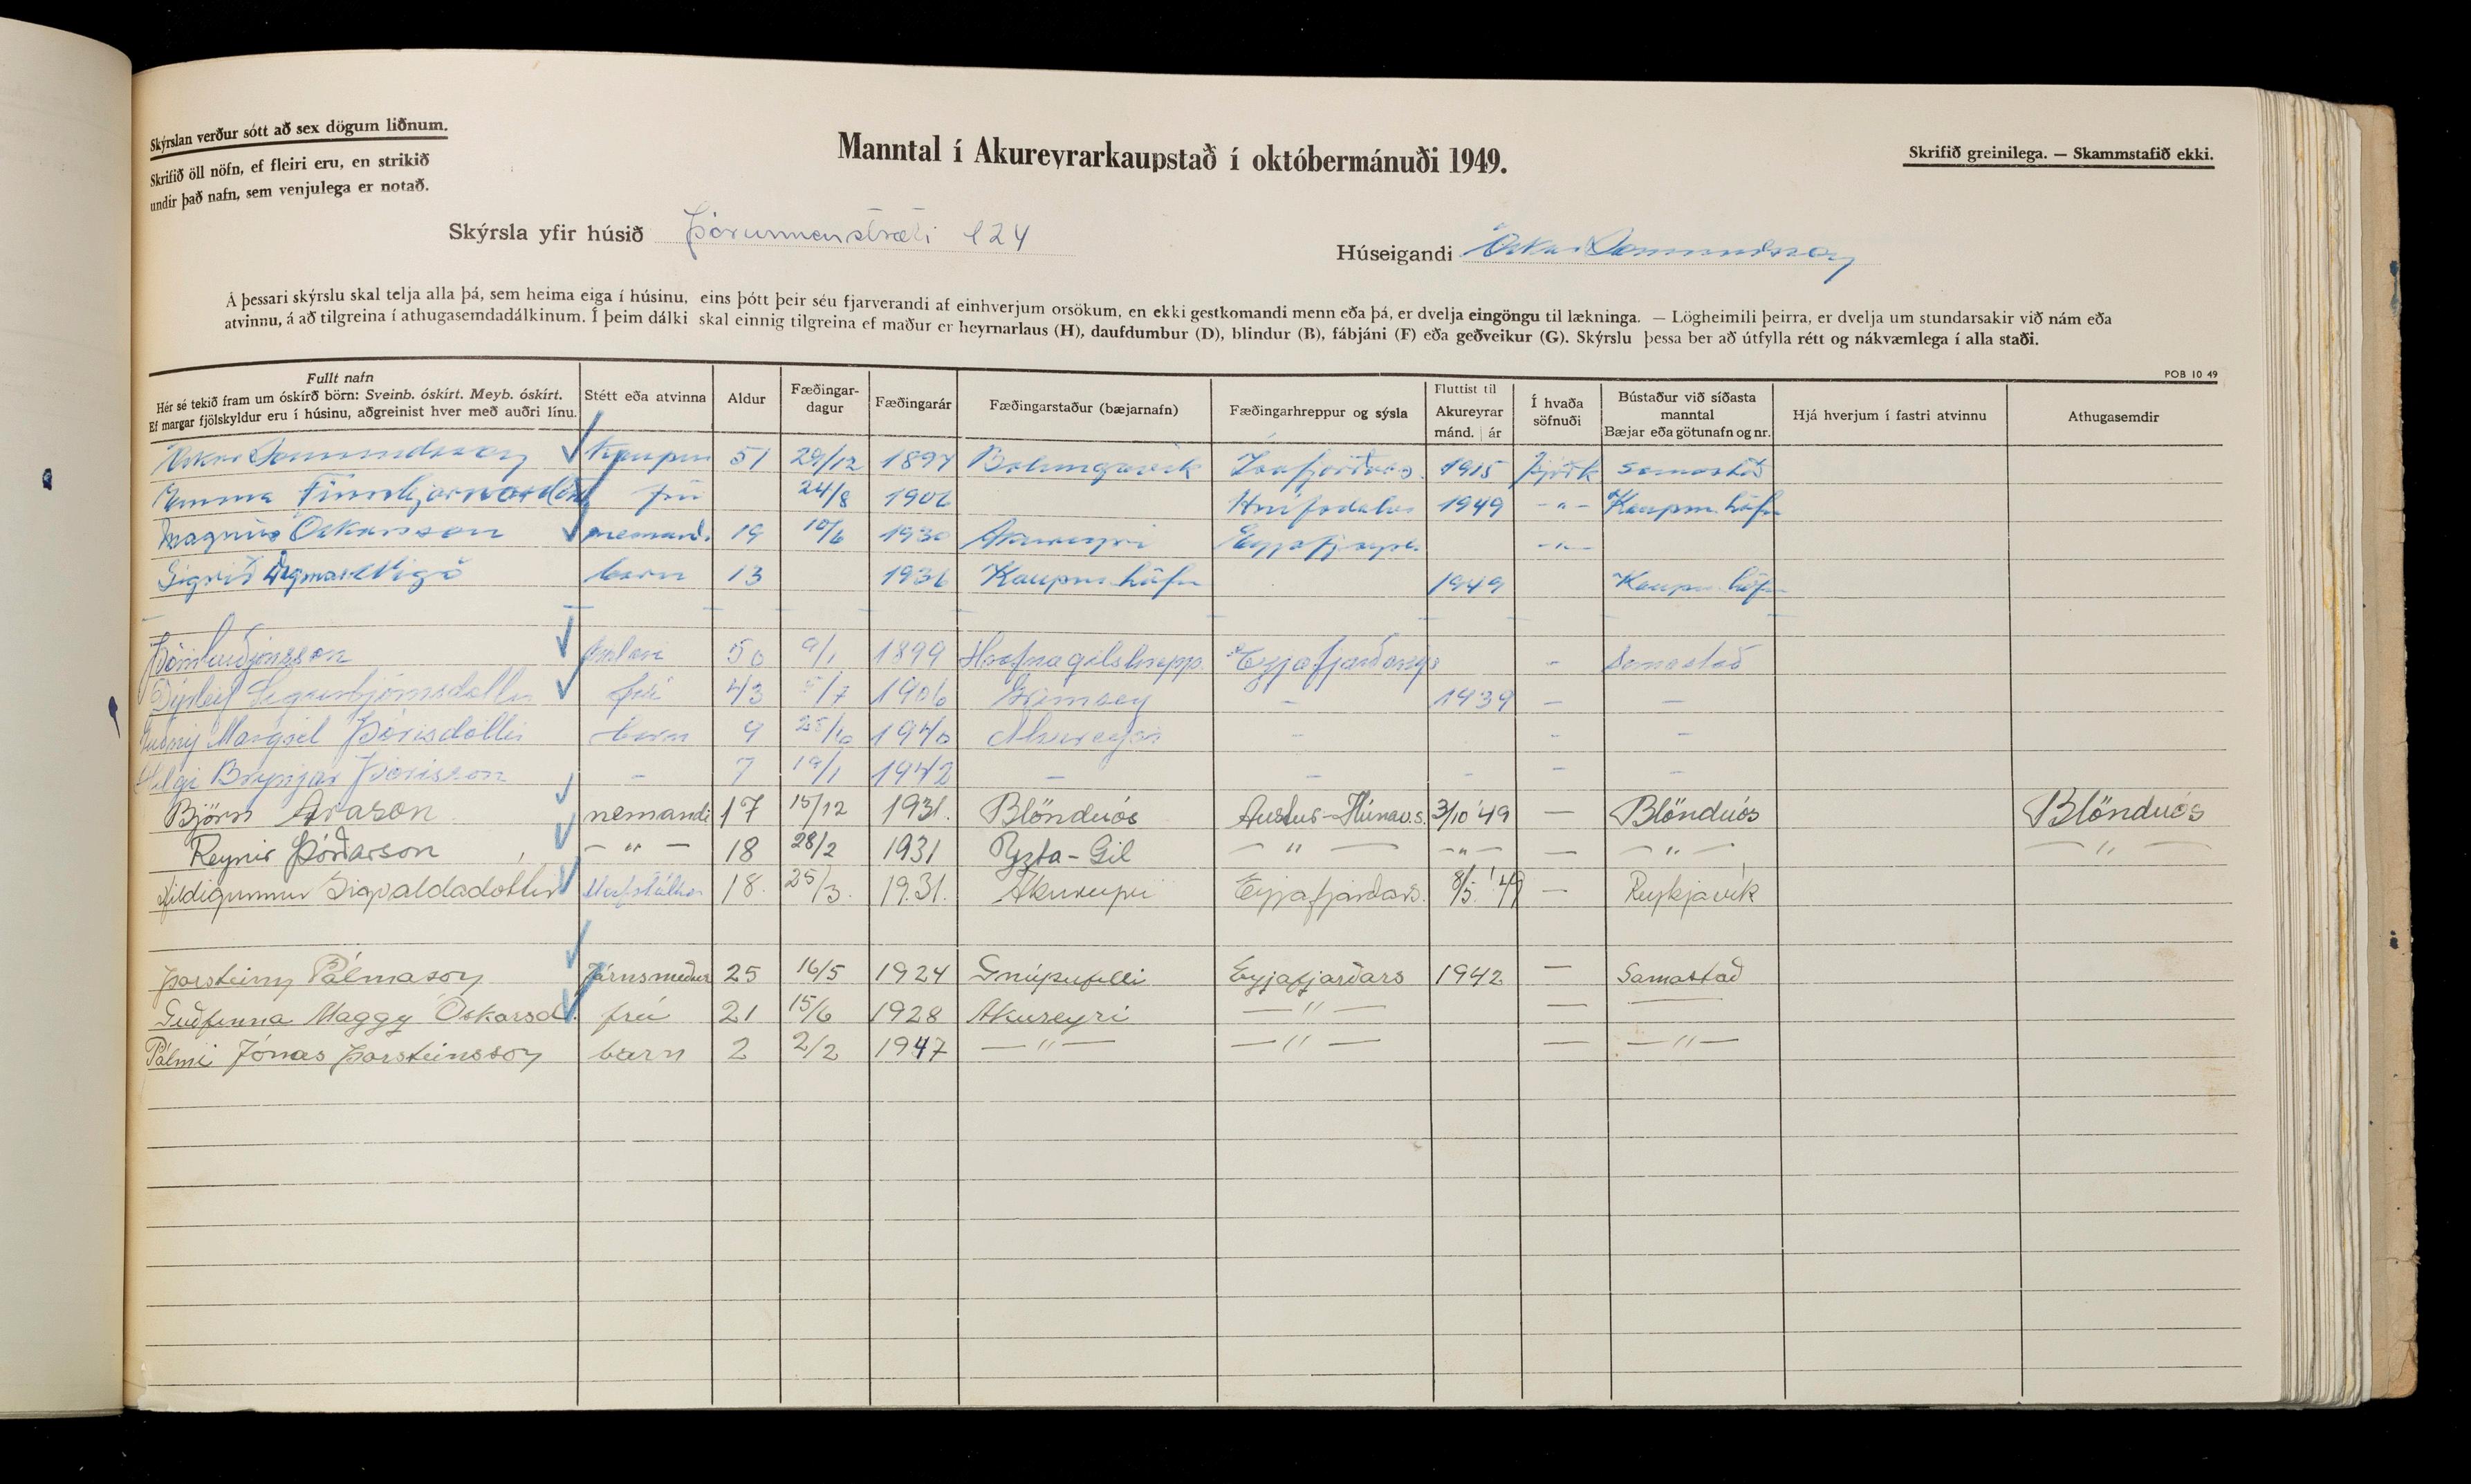 Skýrslan verður sótt að sex dögum liðnum.
Skrifið öll nöfn, ef fleiri eru, en strikið
undir það nafn, sem venjulega er notað.
Manntal í Akureyrarkaupstað í októbermánuði 1949.
Skrifið greinilega. — Skammstafið ekki.
Skýrsla yfir húsið Þórunnarstræti 124
Húseigandi Óskar Sæmundsson
Á þessari skýrslu skal telja alla þá, sem heima eiga í húsinu, eins þótt þeir séu fjarverandi af einhverjum orsökum, en ekki gestkomandi menn eða þá, er dvelja eingöngu til lækninga. — Lögheimili þeirra, er dvelja um stundarsakir við nám eða
atvinnu, á að tilgreina í athugasemdadálkinum. Í þeim dálki skal einnig tilgreina ef maður er heyrnarlaus (H), daufdumbur (D), blindur (B), fábjáni (F) eða geðveikur (G). Skýrslu þessa ber að útfylla rétt og nákvæmlega í alla staði.
POB 10 49
Fullt nafn
Hér sé tekið fram um óskírð börn: Sveinb. óskírt. Meyb. óskírt.
Ef margar fjölskyldur eru í húsinu, aðgreinist hver með auðri línu.
Stétt eða atvinna
Aldur
Fæðingar-
dagur
Fæðingarár
Fæðingarstaður (bæjarnafn)
Fæðingarhreppur og sýsla
Fluttist til
Akureyrar
mánd. ár
Í hvaða
söfnuði
Bústaður við síðasta
manntal
Bæjar eða götunafn og nr.
Hjá hverjum í fastri atvinnu
Athugasemdir
Óskar Sæmundsson kaupm 51 29/12 1897 Bolungavík Ísafjarðars. 1915 þjóðk samastað
Emma Finnbjarnardóttir frú 24/8 1906 Hnífsdalur 1949 -"- Kaupm.höfn
Magnús Óskarsson nemandi 19 10/6 1930 Akureyri Eyjafjarðars. -"-
Sigrið Dagmar barn 13 1936 Kaupm.höfn 1949 Kaupm.höfn
Þórir Guðjónsson málari 50 9/1 1899 Hrafnagilshrepp. Eyjafjarðarsýs - Samastað
Dýrleif Sigurbjörnsdóttir frú 43 /7 1906 Grímsey - 1939 - -
Guðný Margrét Þórisdóttir barn 9 25/10 1940 Akureyri - - - -
Helgi Brynjar Þórisson - 7 19/1 1942 - - - - -
Björn Arason nemandi 17 15/12 1931. Blönduós Austur-Húnav.s. 3/10 '49 — Blönduós Blönduós
Reynir Þórðarson - " - 18 28/2 1931 Yzta-Gil — " — - " - — - " - — " —
Hildigunnur Sigvaldadóttir 18. 25/3. 1931. Akureyri Eyjafjarðars. 8/5 '49 — Reykjavík
Þorsteinn Pálmason Járnsmiður 25 16/5 1924 Gnúpufelli Eyjafjarðars 1942 — Samastað
Guðfinna Maggy Óskarsd. frú 21 15/6 1928 Akureyri — " — — —
Pálmi Jónas Þorsteinsson barn 2 2/2 1947 — " — — " — — — " —